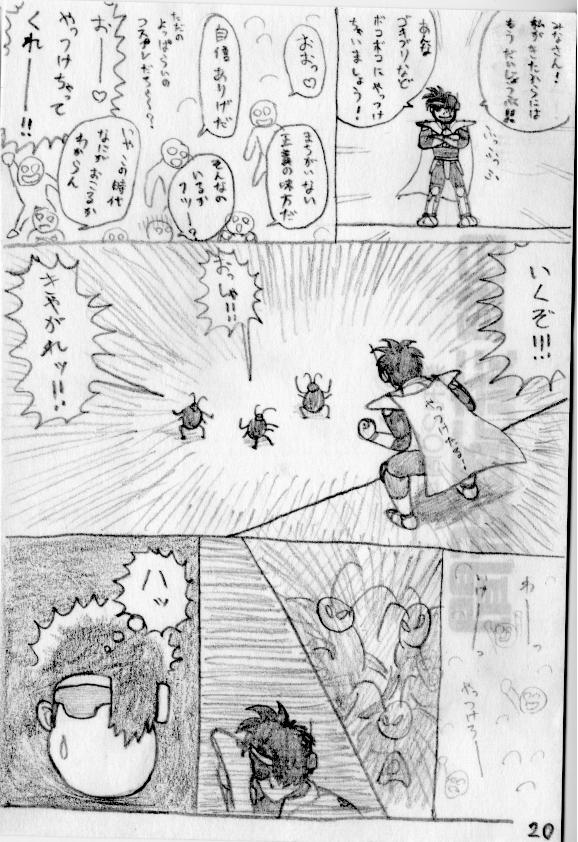 みなさん!
私がきたからには
もうだいじょーぶ!!
あんな
ゴキブリなど
ボコボコにやっつけ
ちゃいましょう!
おお♡
まちがいない
正義の味方だ
自信ありげだ
そんなの
いるか
フツー?
ただの
よっぱらいの
コスプレだろ~~?
いやこの時代
なにがおこるか
わからん
お――♡
やっつけちゃって
くれ――!!
いくぞ!!!
おっしゃ!!
きやがれッ!!
わ――っ
いけ――っ
やっつけろ――
ハッ
20